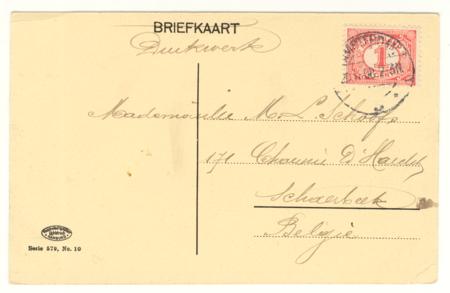 BRIEFKAART
Drukwerk
1
Mademoiselle M. L. Schoofs
171 Chaussée d'Haecht
Schaerbeek
Belgie
Serie 579, No. 10